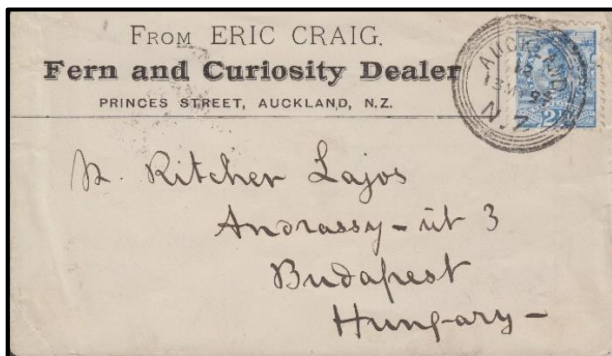 FROM ERIC CRAIG,
Fern and Curiosity Dealer
PRINCES STREET, AUCKLAND, N.Z.
AUCKLAND
N.Z
Ritcher Lajos
Andrassy - út 3
Budapest
Hungary -